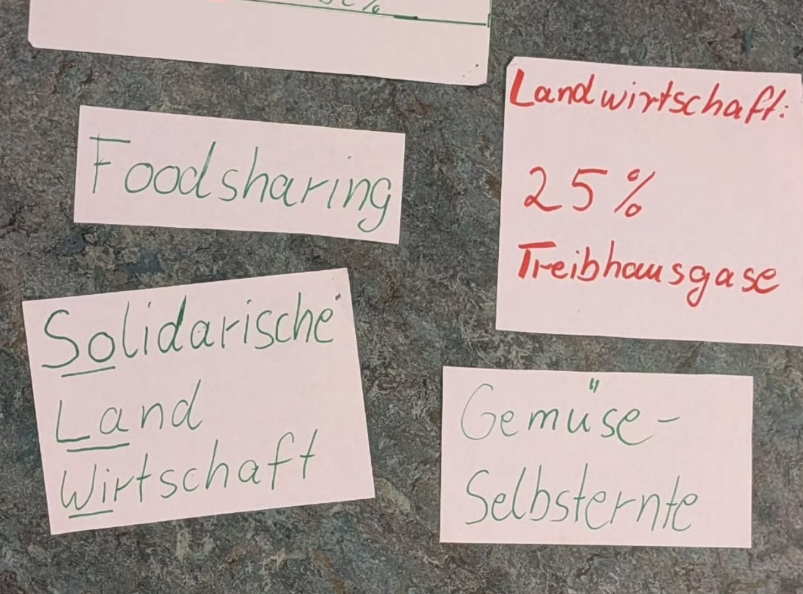 Foodsharing
Landwirtschaft:
25%
Treibhausgase
Solidarische
Land
Wirtschaft
Gemüse-
Selbsternte